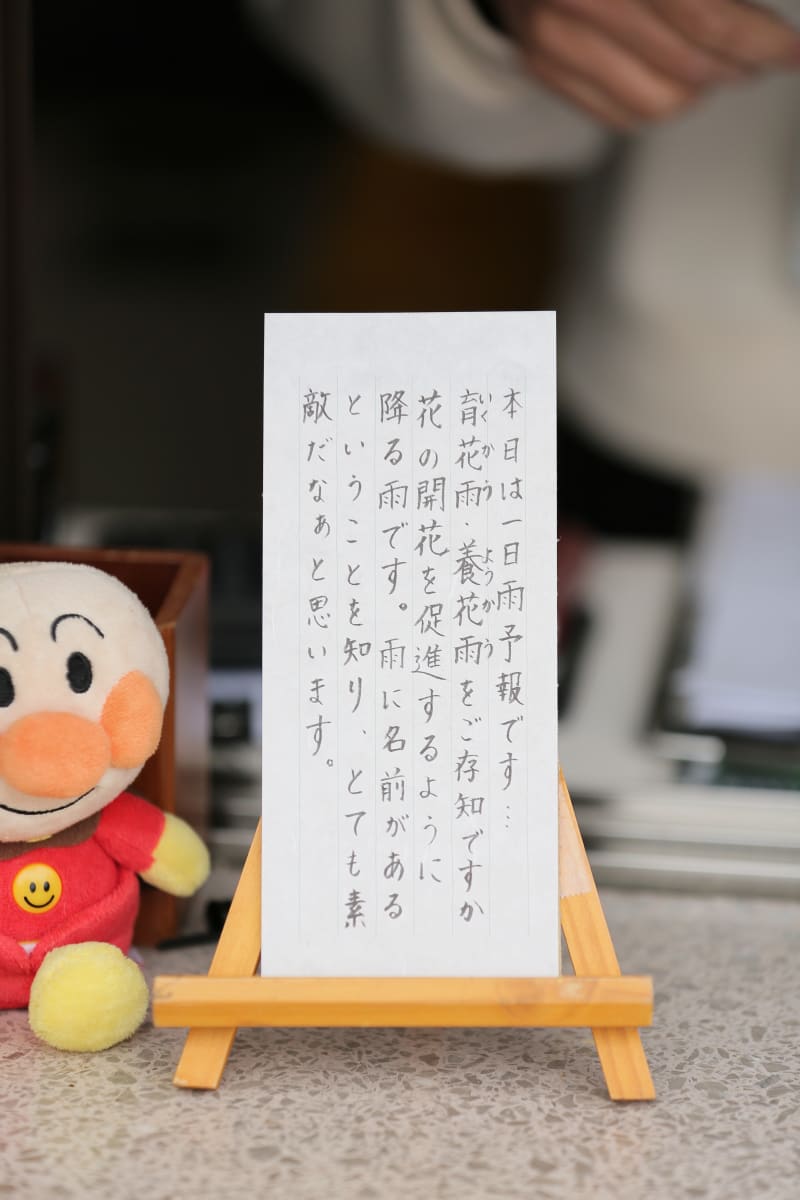 本日は一日雨予報です…
育花雨・養花雨をご存知ですか
いくかう ようかう
花の開花を促進するように
降る雨です。雨に名前がある
ということを知り、とても素
敵だなぁと思います。